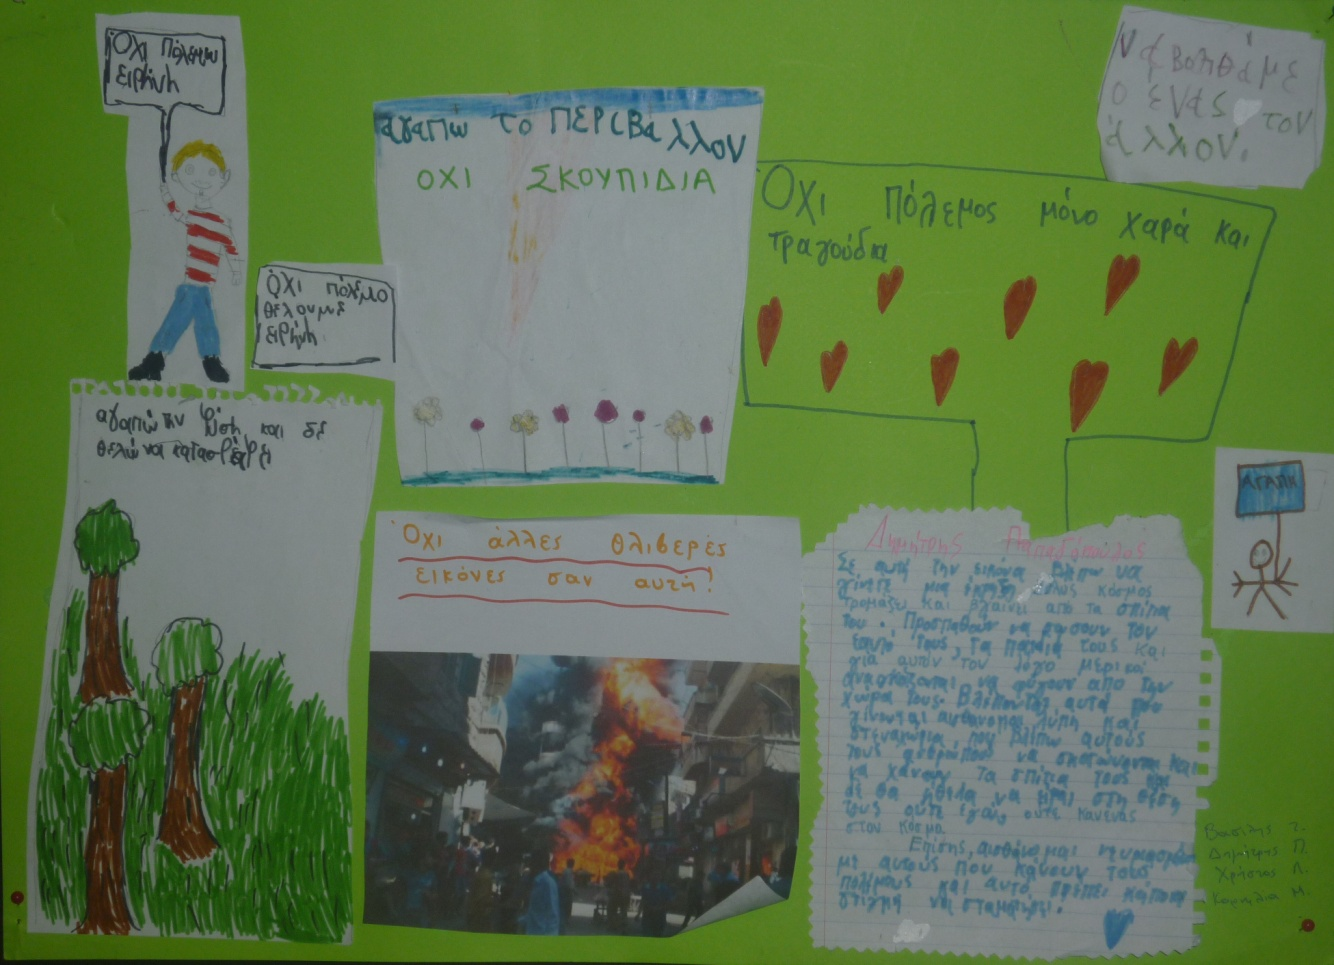 Όχι Πόλεμο
ειρήνη
αγαπώ το ΠΕΡΙΒάλλον
ΟΧΙ ΣΚΟΥΠΙΔΙΑ
Να βοηθάμε
ο ένας τον
άλλον.
Όχι Πόλεμος μόνο χαρά και
τραγούδια
ΌΧΙ πόλεμο
θέλουμε
ειρήνη
αγαπώ την φύση και δε
θέλω να καταστρέφει
Όχι άλλες θλιβερές
εικόνες σαν αυτή!
ΑΓΑΠΗ
Δημήτρης Παπαδόπουλος
Σε αυτή την εικόνα βλέπω να
γίνεται μια έκρηξη, πολύς κόσμος
τρομάζει και βγαίνει από τα σπίτια
του. Προσπαθούν να σώσουν τον
εαυτό τους, τα παιδιά τους και
για αυτόν τον λόγο μερικοί
αναγκάζονται να φύγουν από την
χώρα τους. Βλέποντας αυτά που
γίνονται αισθάνομαι λύπη και
στεναχώρια που βλέπω αυτούς
τους ανθρώπους να σκοτώνονται και
να χάνουν τα σπίτια τους και
δε θα ήθελα να είμαι στη θέση
τους ούτε εγώ, ούτε κανένας
στον κόσμο.
Επίσης, αισθάνομαι
με αυτούς που κάνουν τους
πολέμους και αυτό πρέπει κάποια
στιγμή να σταματήσει.
Βασίλης Τ.
Δημήτρης Π.
Χρήστος Λ.
Κορνηλία Μ.